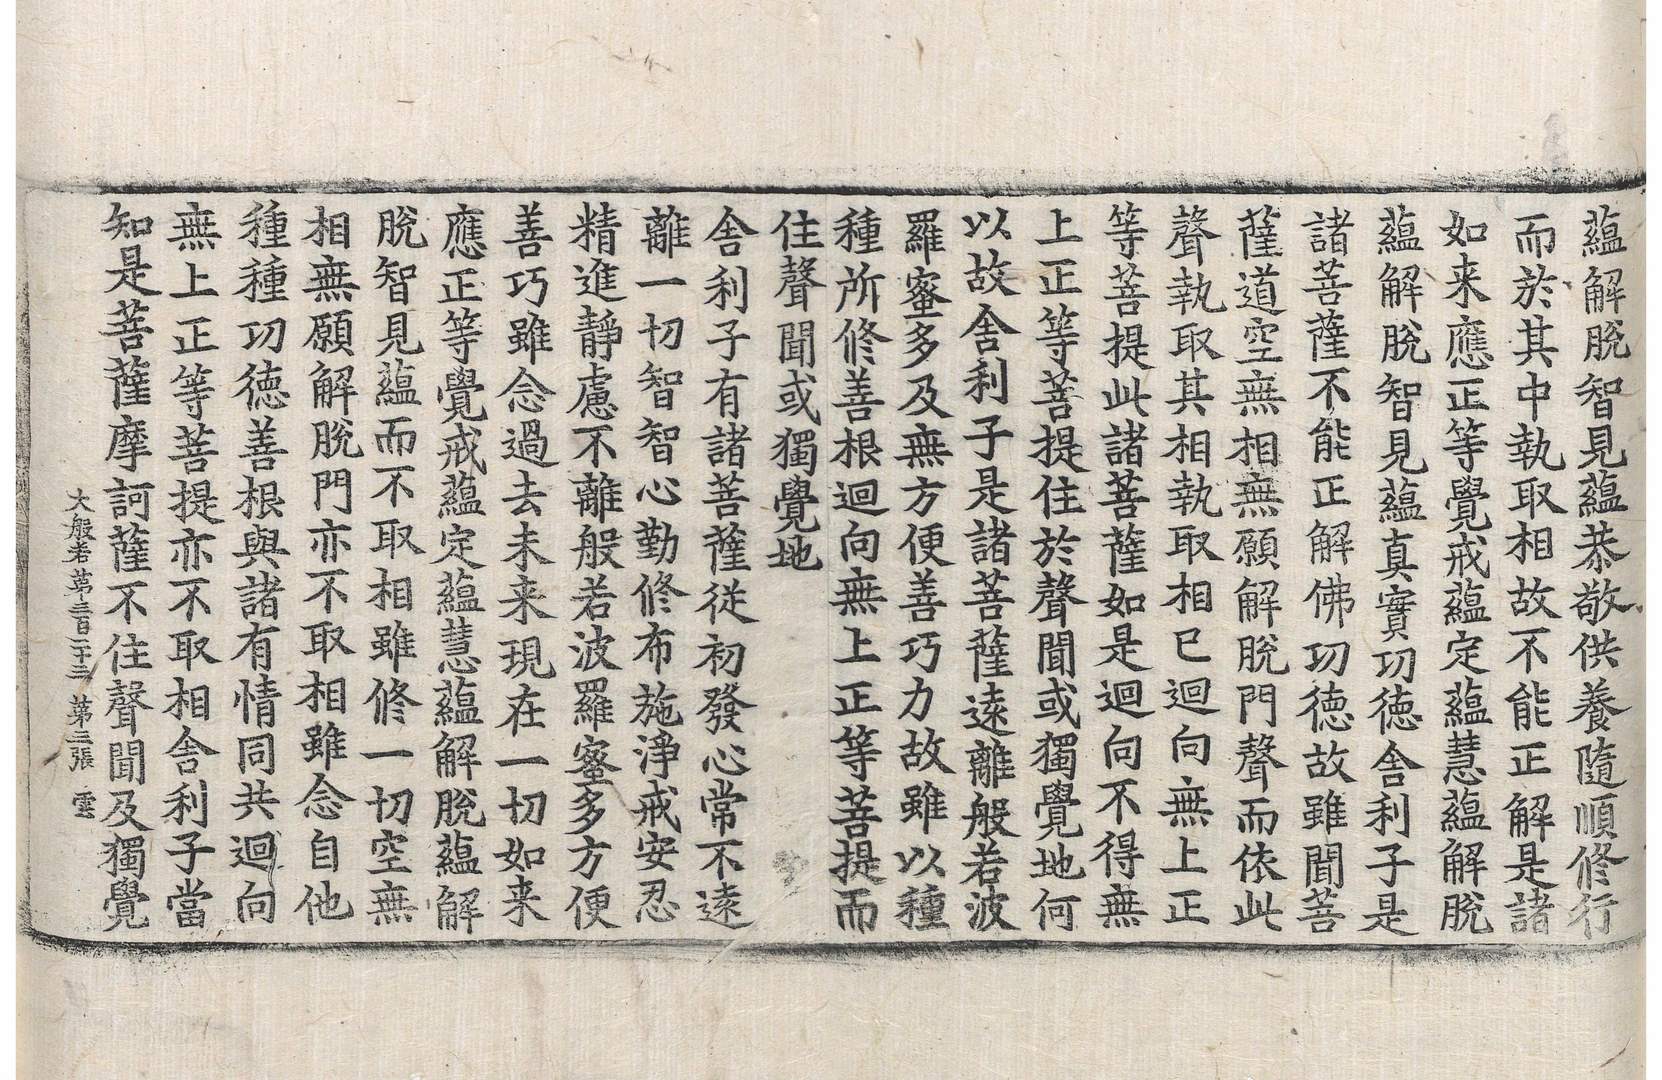 蘊解脫智見蘊恭敬供養隨順修行
而於其中執取相故不能正解是諸
如来應正等覺戒蘊定蘊慧蘊解脫
蘊解脫智見蘊真實功德舍利子是
諸菩薩不能正解佛功德故雖聞菩
薩道空無相無願解脫門聲而依此
聲執取其相執取相已迴向無上正
等菩提此諸菩薩如是迴向不得無
上正等菩提住於聲聞或獨覺地何
以故舍利子是諸菩薩遠離般若波
羅蜜多及無方便善巧力故雖以種
種所修善根迴向無上正等菩提而
住聲聞或獨覺地
舍利子有諸菩薩從初發心常不遠
離一切智智心勤修布施淨戒安忍
精進靜慮不離般若波羅蜜多方便
善巧雖念過去未来現在一切如来
應正等覺戒蘊定蘊慧蘊解脫蘊解
脫智見蘊而不取相雖修一切空無
相無願解脫門亦不取相雖念自他
種種功德善根與諸有情同共迴向
無上正等菩提亦不取相舍利子當
知是菩薩摩訶薩不住聲聞及獨覺
大般若第三百二十三 第三張 雲